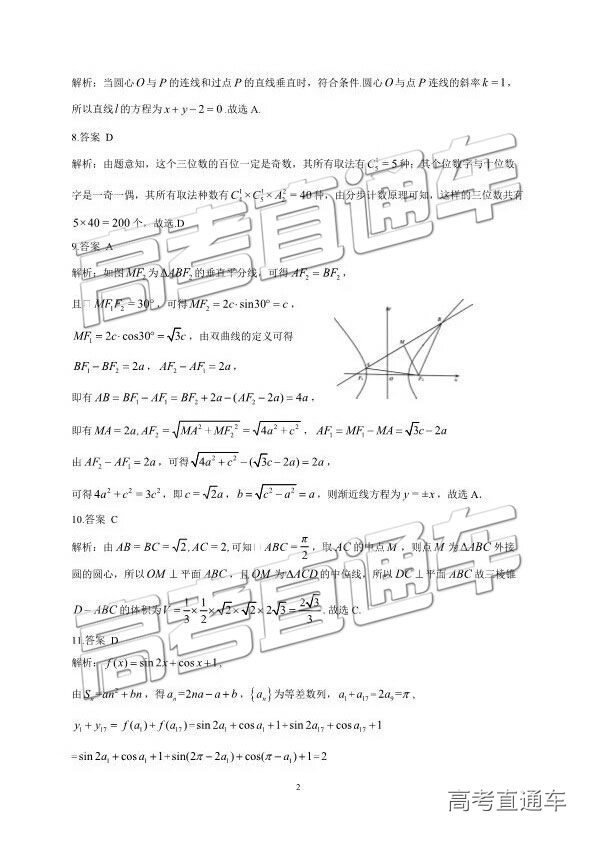 解析：当圆心O与P的连线和过点P的直线垂直时，符合条件.圆心O与点P连线的斜率k=1，
所以直线l的方程为x+y−2=0.故选A.
8.答案 D
解析：由题意知，这个三位数的百位一定是奇数，其所有取法有C₅¹=5种；其个位数字与十位数
字是一奇一偶，其所有取法种数有C₄¹×C₅¹×A₂²=40种，由分步计数原理可知，这样的三位数共有
5×40=200个，故选.D
9.答案 A
解析：如图MF₂为ΔABF₂的垂直平分线，可得AF₂=BF₂，
且□MF₁F₂=30°，可得MF₂=2c·sin30°=c，
MF₁=2c·cos30°=√3c，由双曲线的定义可得
BF₁−BF₂=2a，AF₂−AF₁=2a，
即有AB=BF₁−AF₁=BF₂+2a−(AF₂−2a)=4a，
即有MA=2a,AF₂=√(MA²+MF₂²)=√(4a²+c²)，AF₁=MF₁−MA=√3c−2a
由AF₂−AF₁=2a，可得√(4a²+c²)−(√3c−2a)=2a，
可得4a²+c²=3c²，即c=√2a，b=√(c²−a²)=a，则渐近线方程为y=±x，故选A.
10.答案 C
解析：由AB=BC=√2,AC=2,可知□ABC=π/2，取AC的中点M，则点M为ΔABC外接
圆的圆心，所以OM⊥平面ABC，且OM为ΔACD的中位线，所以DC⊥平面ABC故三棱锥
D−ABC的体积为V=1/3×1/2×√2×√2×2√3=2√3/3.故选C.
11.答案 D
解析：f(x)=sin2x+cosx+1，
由Sₙ=an²+bn，得aₙ=2na−a+b，{aₙ}为等差数列，a₁+a₁₇=2a₉=π，
y₁+y₁₇=f(a₁)+f(a₁₇)=sin2a₁+cosa₁+1+sin2a₁₇+cosa₁₇+1
=sin2a₁+cosa₁+1+sin(2π−2a₁)+cos(π−a₁)+1=2
2
高考直通车
高考直通车
高考直通车
高考直通车